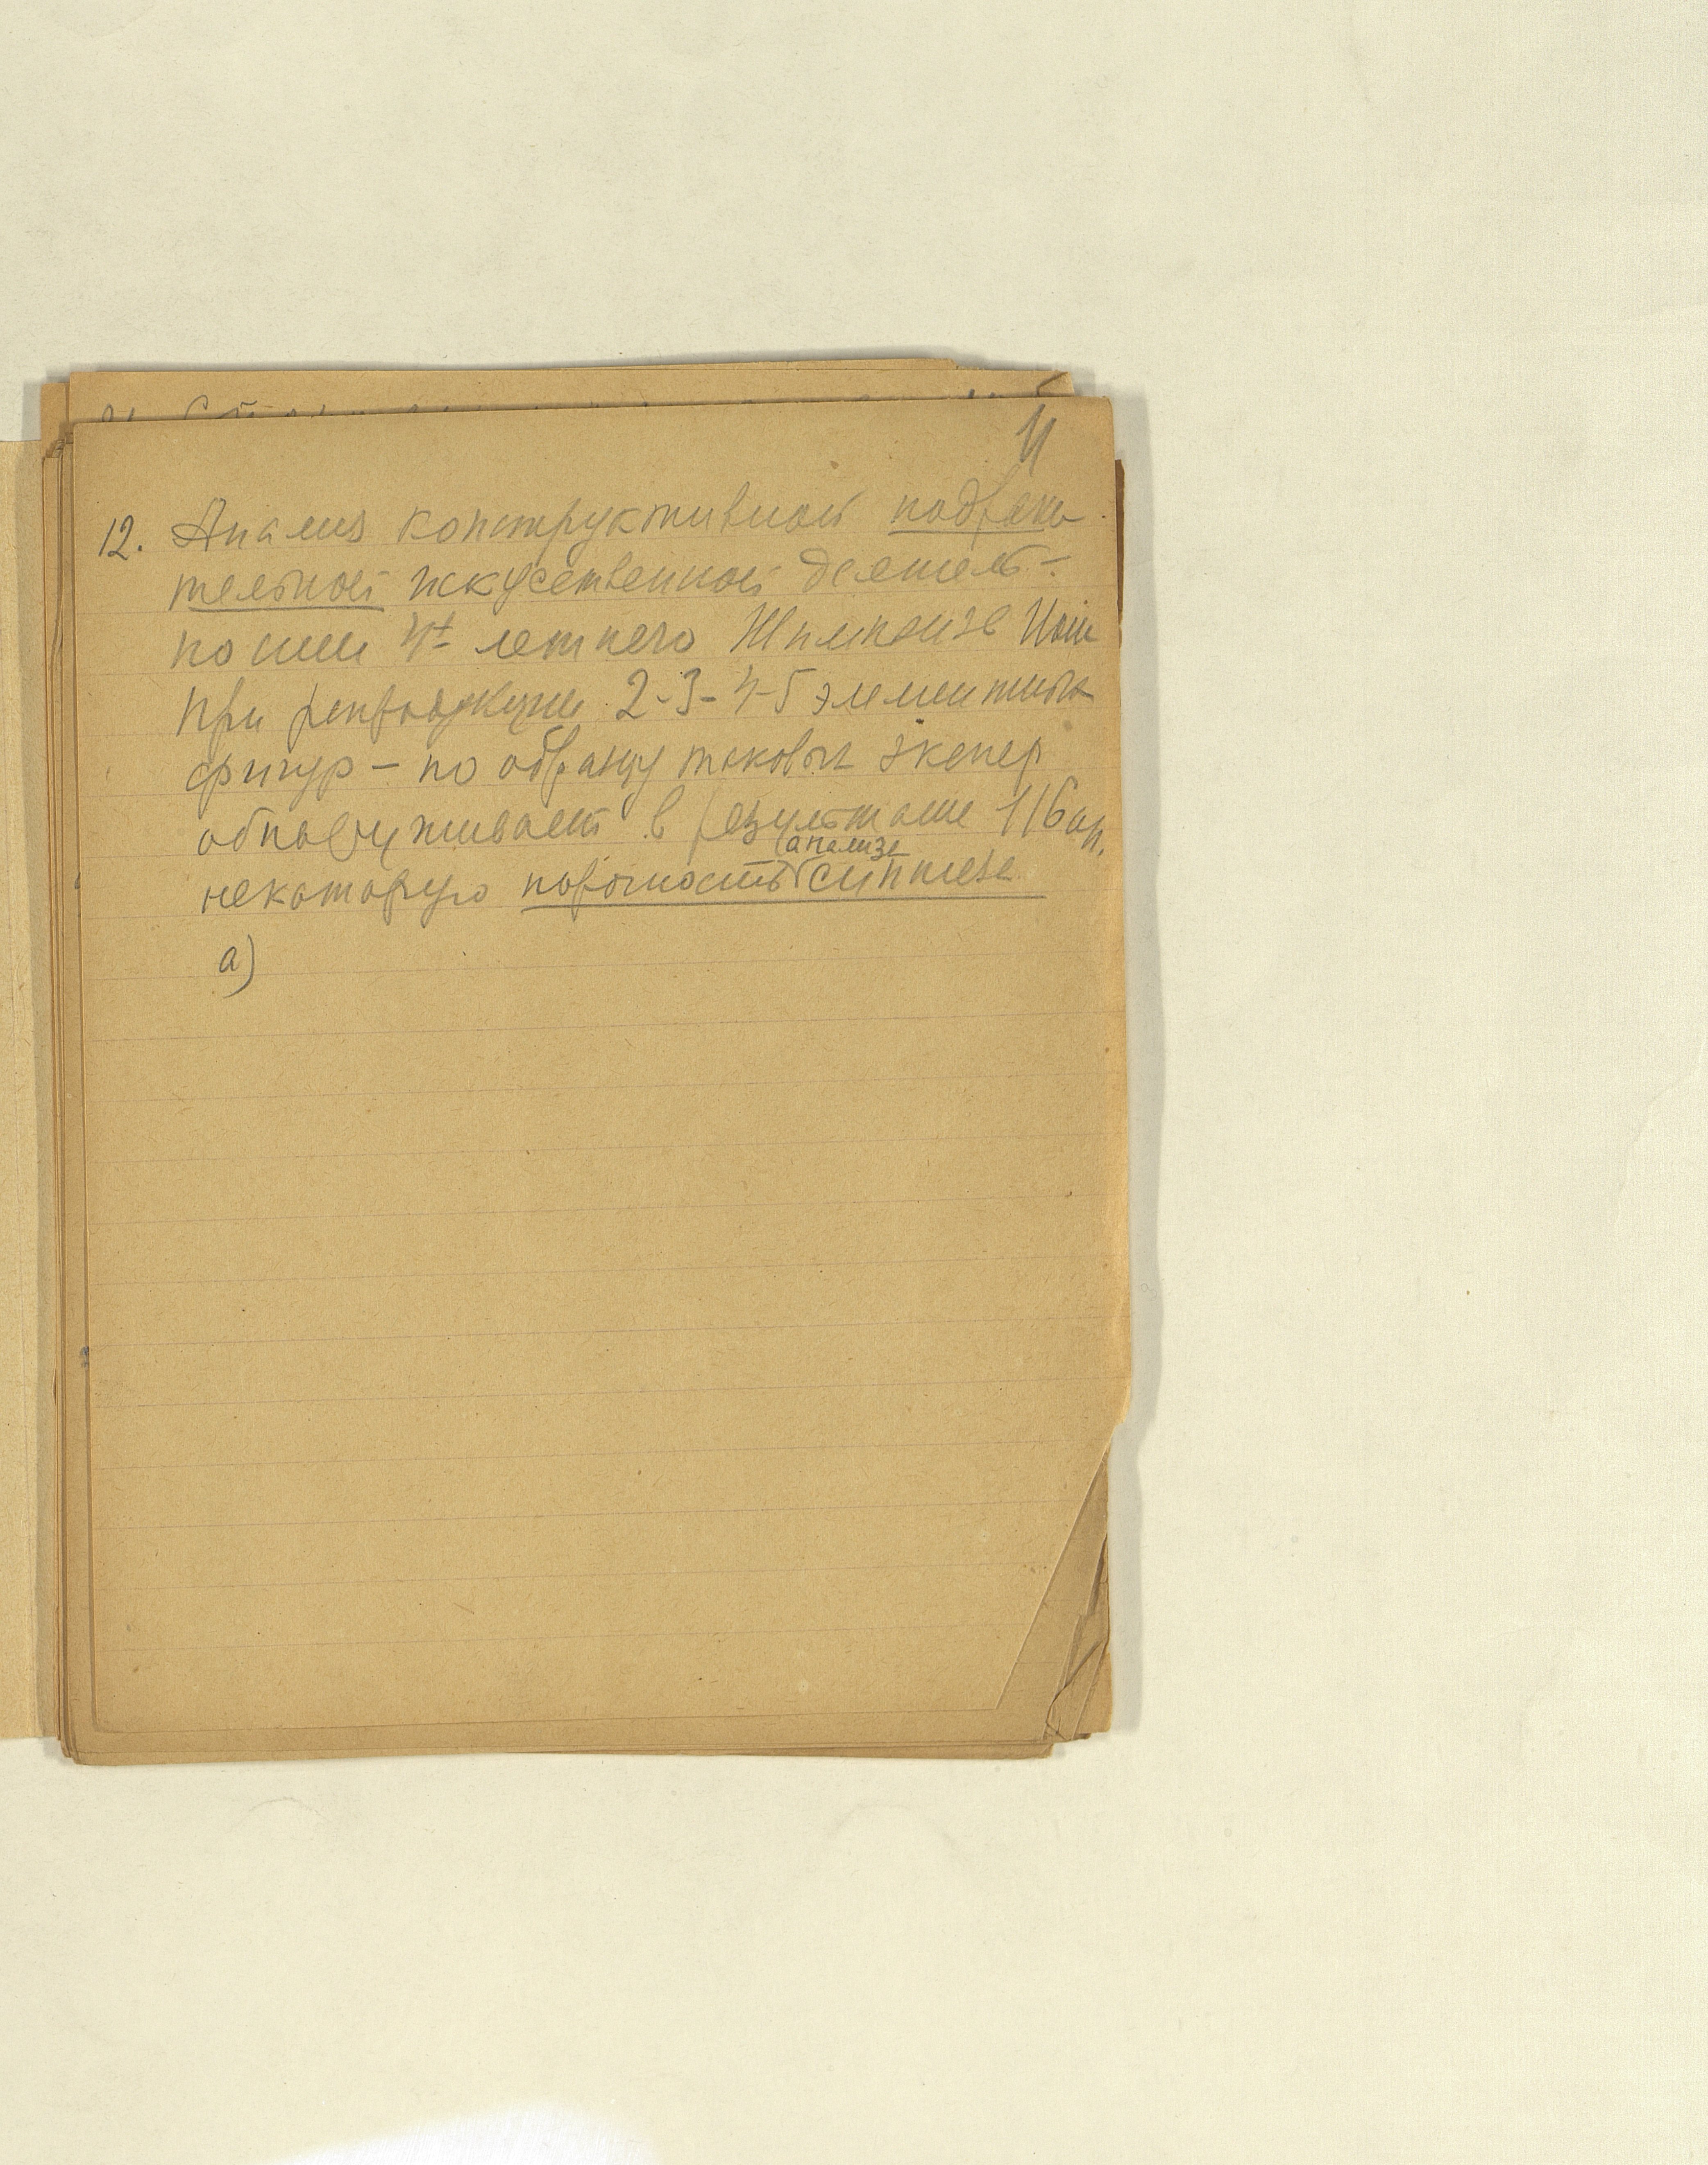 11
12. Анализ конструктивной подража
тельной искуственной деятель-
ности 4х летнего Шимпанзе Иони
при репродукции 2-3-4-5 элементных
фигур - по образцу таковых экспер
обнаруживает в результате 116 оп.
анализа
некоторую порочность синтеза
а)